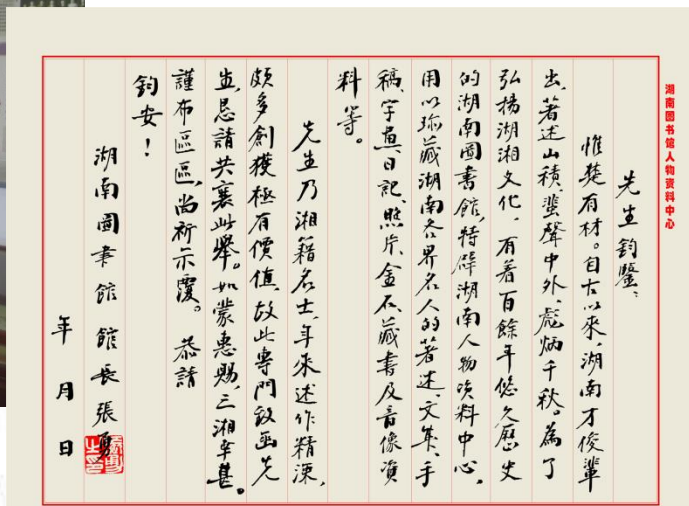 湖南图书馆人物资料中心
先生鈞鑒:
惟楚有材。自古以來,湖南才俊輩
出,著述山積,蜚聲中外,彪炳千秋。為了
弘揚湖湘文化,有着百餘年悠久歷史
的湖南圖書館,特辟湖南人物资料中心,
用以珎藏湖南各界名人的著述、文集、手
稿、字畫、日記、照片、金石、藏書及音像資
料等。
先生乃湘籍名士,年來述作精深,
頗多創獲極有價值,故此專門致函先
生,恳請共襄此舉。如蒙惠賜,三湘幸甚。
謹布區區,尚祈示覆。 恭請
鈞安!
湖南圖書館 館長 張勇
年 月 日